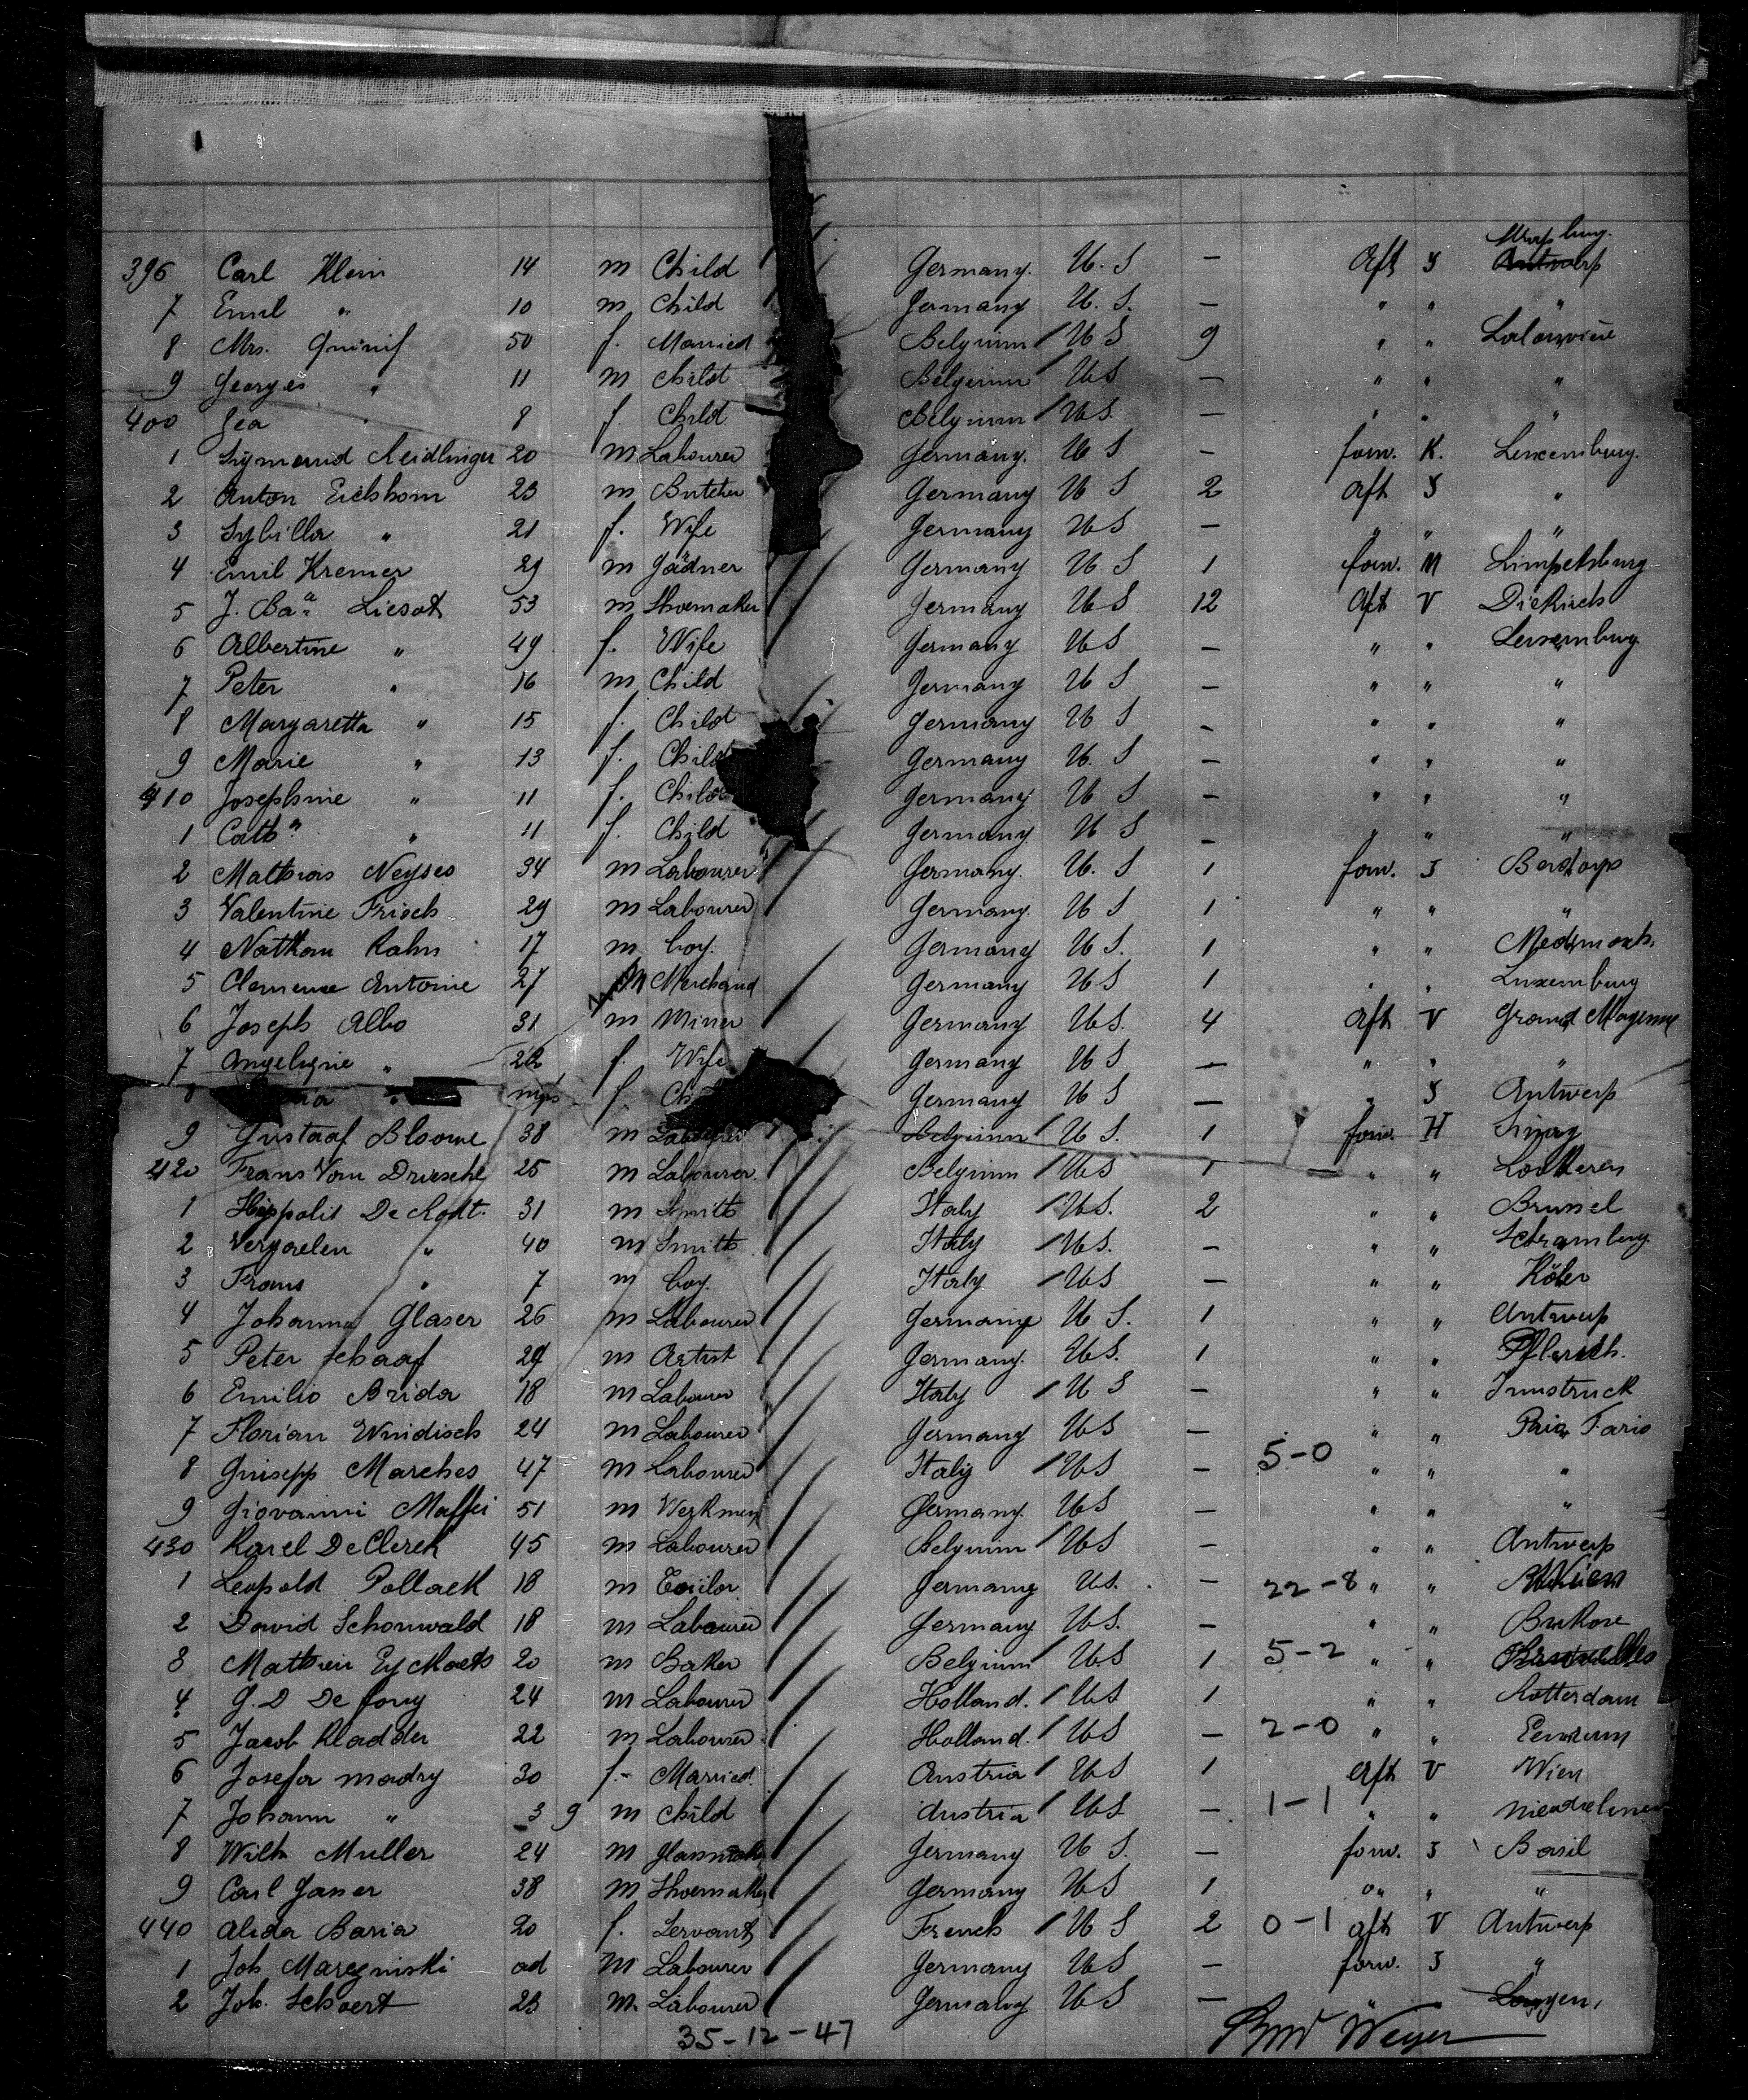 Strassburg.
396 Carl Klein 14 m Child Germany. U. S — Aft S Antwerp
7 Emil " 10 m Child Germany U. S. — " " "
8 Mrs. Quinif 50 f. Married Belgium U S 9 " "
9 Georges " 11 m Child Belgium U S — " " "
400 Lea " 8 f. Child Belgium U S. — " " "
1 20 m Labourer Germany. U S — forw. K. Luxemburg.
2 Anton Eichhorn 23 m Butcher Germany U S 2 aft S "
3 Sybilla " 21 f. Wife Germany U S — " " "
4 Emil Kremer 29 m Gädner Germany U S 1 forw. M Limpertsburg
5 J. Bas Liesot 53 m Shoemaker Germany U S 12 Aft V Diekirch
6 Albertine " 49 f. Wife Germany U S — " " Luxemburg
7 Peter " 16 m Child Germany U S — " " "
8 Margaretta " 15 f. Child Germany U S — " " "
9 Marie " 13 f. Child Germany U. S — " " "
410 Josephine " 11 f. Child Germany U S — " " "
1 Cath " 11 f. Child Germany U S — " " "
2 Mathias Neyses 34 m Labourer Germany. U. S 1 forw. S Berdorf
3 Valentine Frisch 29 m Labourer Germany. U S 1 " " "
4 Nathan Kahn 17 m boy. Germany U S. 1 " "
5 Clemence Antoine 27 m Merchand Germany U S 1 " " Luxemburg
6 Joseph Albo 31 m Miner Germany U S. 4 aft V Grand Moyeuvre
7 Angeligne " 22 f. Wife Germany U S — " " "
8 " mps f. Ch Germany U S — " S Antwerp
9 Gustaaf Bloome 38 m Labourer Belgium U S. 1 forw. H Sinay
420 Frans Van Driesche 25 m Labourer. Belgium U S 1 " " Lokkeren
1 Hippolit De Rodt. 31 m Smith Italy U S. 2 " " Brussel
2 Vergaelen " 40 m Smith Italy U S. — " " Schramberg
3 Frans " 7 m boy. Italy U S — " "
4 Johanna Glaser 26 m Labourer Germany U S. 1 " " Antwerp
5 Peter Schaaf 29 m Artist Germany. U S. 1 " "
6 Emilio Arida 18 m Labourer Italy U S — " " Innstruck
7 Florian Windisch 24 m Labourer Germany U S — " "
8 Guisepp Marches 47 m Labourer Italy U S — 5-0 " " "
9 Giovanni Maffei 51 m Werkmen Germany. U S — " " "
430 Karel De Clerck 45 m Labourer Belgium U S — " " Antwerp
1 Leopold Pollack 18 m Tailor Germany U S. — 22-8 " " Wien
2 David Schonwald 18 m Labourer Germany U S. — " "
3 Mathieu Eyckmoets 20 m Baker Belgium U S 1 5-2 " " Bruxelles
4 G. D De Jong 24 m Labourer Holland. U S 1 " " Rotterdam
5 Jacob Kladder 22 m Labourer Holland. U S — 2-0 " " Eenrum
6 Josefa Madry 30 f. Married. Austria U S 1 aft V Wien
7 Johann " 3 9 m Child Austria U S — 1-1 " "
8 Wilh Muller 24 m Germany U S. — forw. S Basil
9 Carl Ganer 38 m Shoemaker Germany U S 1 " " "
440 Alida Baria 20 f. Servant French U S 2 0-1 aft V Antwerp
1 Joh Maregniski ad m Labourer Germany U S — forw. S "
2 Joh. Schoert 23 m. Labourer Germany U S — " "
35-12-47
Weyer